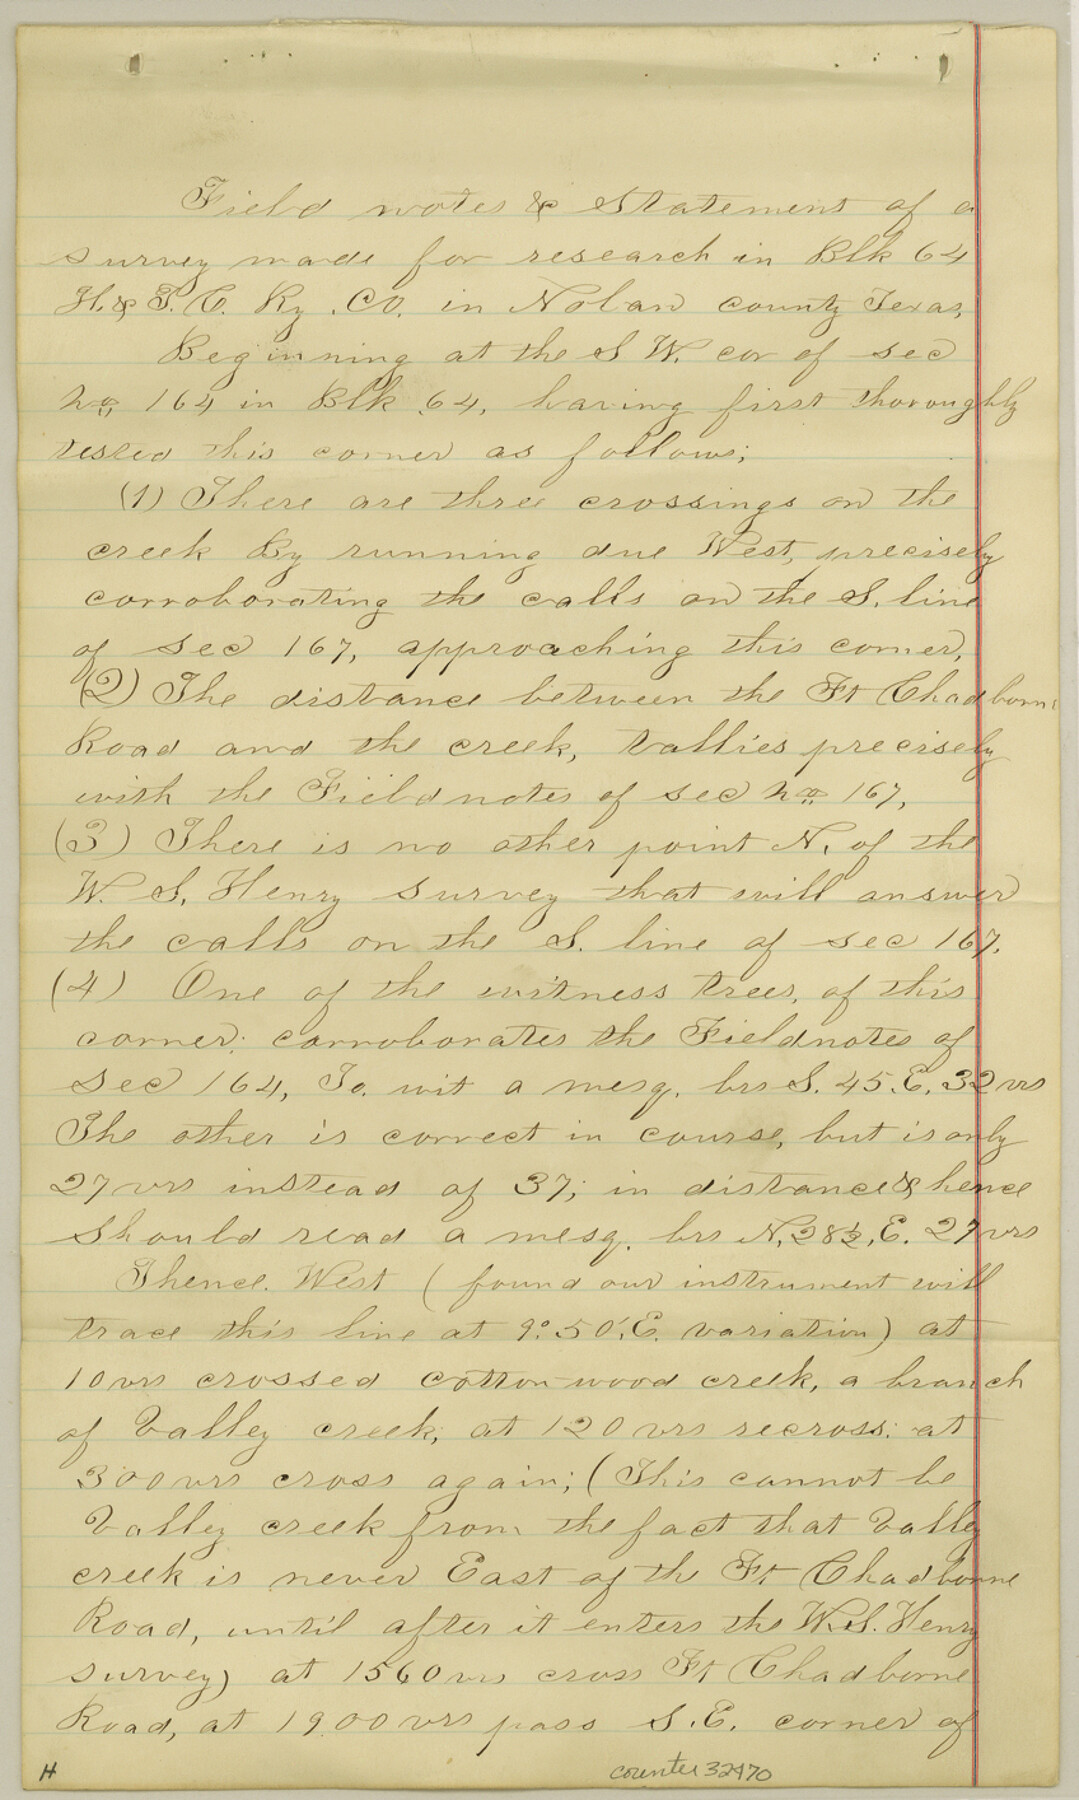 Field notes & Statement of a
survey made for research in Blk 64
H. & T. C. Ry. Co. in Nolan county Texas,
Beginning at the S W. cor of sec
No 164 in Blk 64, having first thoroughly
tested this corner as follows;
(1) There are three crossings on the
creek By running due West, precisely
corroborating the calls on the S. line
of sec 167, approaching this corner,
(2) The distance between the Ft Chadborne
Road and the creek, tallies precisely
with the Fieldnotes of sec No 167,
(3) There is no other point N. of the
W. S. Henry survey that will answer
the calls on the S. line of sec 167.
(4) One of the witness trees, of this
corner; corroborates the Fieldnotes of
sec 164, To. wit a mesq. brs S. 45. E. 32 vrs
The other is correct in course, but is only
27 vrs instead of 37; in distance & hence
should read a mesq. brs N. 28½, E. 27 vrs
Thence. West (found our instrument will
trace this line at 9°.50'. E. variation) at
10 vrs crossed cotton-wood creek, a branch
of Valley creek, at 120 vrs recross; at
300 vrs cross again; (This cannot be
Valley creek from the fact that Valley
creek is never East of th Ft Chadborne
Road, until after it enters the W. S. Henry
survey) at 1560 vrs cross Ft Chadborne
Road, at 1900 vrs pass S. E. corner of
H counter 32470